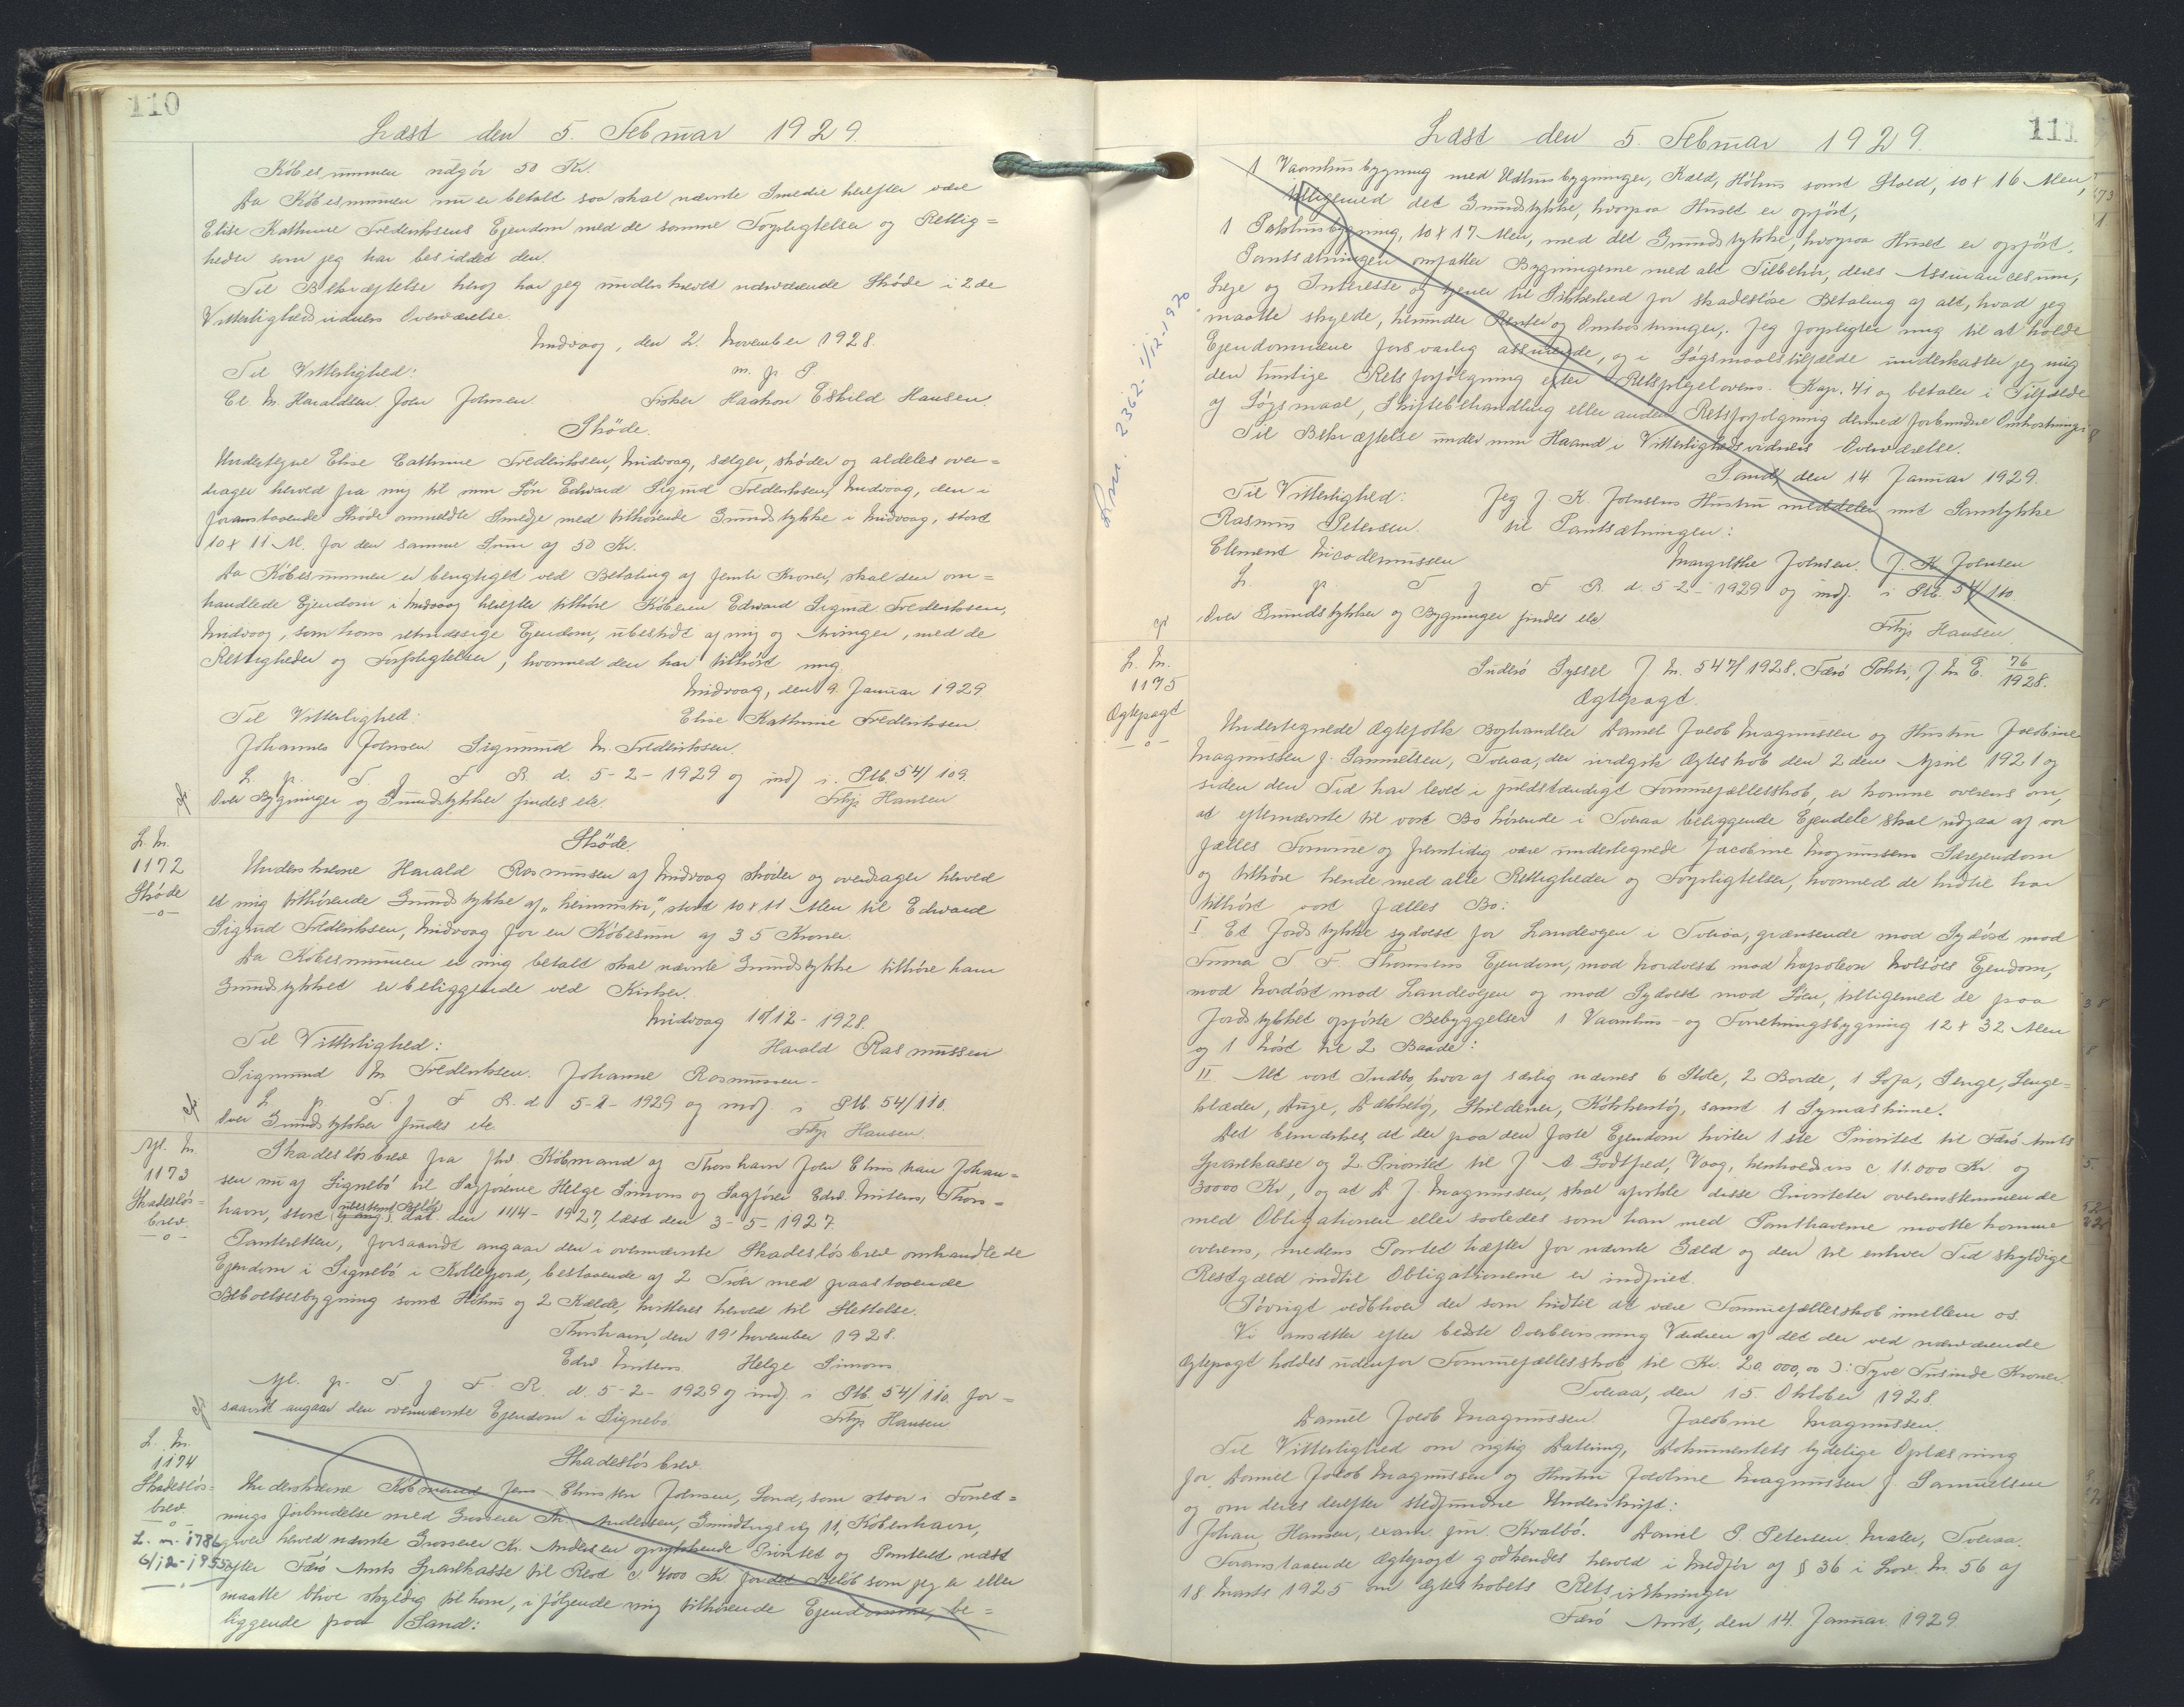 110
Læst den 5. Februar 1929.
Købesummen udgør 50 Kr.
Da Købesummen nu er betalt saa skal nævnte Smedie herefter være
Elise Kathrine Frederiksens Ejendom med de samme Forpligtelser og Rettig=
heder som jeg har besiddet den.
Til Bekræftelse heraf har jeg underskrevet nærværende Skøde i 2de
Vitterlighedsvidners Overværelse.
Midvaag, den 2. November 1928.
Til Vitterlighed: m. p. P.
Cl. M. Haraldsen John Johnsen. Fisker Haakon Eskild Hansen.
Skøde.
Undertegne Elise Cathrine Frederiksen, Midvaag, sælger, skøder og aldeles over=
drager herved fra mig til min Søn Edward Sigmund Frederiksen, Midvaag, den i
foranstaaende Skøde ommeldte Smedje med tilhørende Grundstykke i Midvaag, stort
10 x 11 Al. for den samme Sum af 50 Kr.
Da Købesummen er berigtiget ved Betaling af femti Kroner, skal den om=
handlede Ejendom i Midvaag herefter tilhøre Køberen Edward Sigmund Frederiksen,
Midvaag, som hans retmæssige Ejendom, ubeskidt af mig og Arvinger, med de
Rettigheder og Forpligtelser, hvormed den har tilhørt mig.
Midvaag, den 9. Januar 1929.
Til Vitterlighed: Elise Kathrine Frederiksen.
Johannes Joensen Sigmund M. Frederiksen.
L. p. T. f. F. R. d. 5-2-1929 og indf. i Ptb. 54/109.
Over Bygninger og Grundstykker findes ele.
Filip Hansen
L. Nr.
1172
Skøde
—o—
Skøde.
Underskrevne Harald Rasmussen af Midvaag skøder og overdrager herved
et mig tilhørende Grundstykke af "heimasta", stort 10 x 11 Alen til Edward
Sigmund Frederiksen, Midvaag for en Købesum af 35 Kroner.
Da Købesummen er mig betalt skal nævnte Grundstykke tilhøre ham
Grundstykket er beliggende ved Kirken.
Midvaag 10/12-1928.
Til Vitterlighed: Harald Rasmussen
Sigmund M Frederiksen. Johanne Rasmussen.
L. p. T. f. F. R. d. 5-2-1929 og indf. i Ptb. 54/110.
Over Grundstykker findes ele.
Filip Hansen.
Afl. Nr.
1173
Skadesløs=
brev.
—o—
Skadesløsbrev fra fhv. Købmand af Thorshavn John Elinskan Johan=
sen nu af Signebø til Sagførerne Helge Simons og Sagfører Edw. Mitens, Thors=
havn, stort ubestemt Beløb, dat. den 11/4-1927, læst den 3-5-1927.
Panteretten, forsaavidt angaar den i ovennævnte Skadesløsbrev omhandlede
Ejendom i Signebø i Kollefjord, bestaaende af 2 Tofter med paastaaende
Beboelsesbygning samt Høhus og 2 Kælde, kvitteres herved til Slettelse.
Thorshavn, den 19' November 1928.
Edw. Mitens. Helge Simons.
Afl. p. T. f. F. R. d. 5-2-1929 og indf. i Ptb. 54/110. for=
saavidt angaar den ovennævnte Ejendom i Signebø.
Filip Hansen
L. Nr.
1174
Skadesløs=
brev
—o—
L. nr. 1786
6/12-1955
Skadesløsbrev.
Underskrevne Købmand Jens Elinskan Johnsen, Sand, som staar i Forret=
nings forbindelse med Grosserer Kr. Andersen, Grundtvigsvej 11, København,
giver herved nævnte Grosserer Kr. Andersen oprykkende Prioritet og Panteret næst
efter Færø Amts Sparekasse til Rest c. 4000 Kr. for det Beløb som jeg er eller
maatte blive skyldig til ham, i følgende mig tilhørende Ejendomme, be=
liggende paa Sand:
111
Læst den 5. Februar 1929.
1 Vaaninhusbygning med Udhusbygninger, Kæld, Høhus samt Stald, 10 x 16 Alen,
tilligemed det Grundstykke, hvorpaa Huset er opført,
1 Pakhusbygning, 10 x 17 Alen, med det Grundstykke, hvorpaa Huset er opført.
Pantsætningen omfatter Bygningerne med alt Tilbehør, deres Assurancesum,
Leje og Interesse og tjener til Sikkerhed for skadesløse Betaling af alt, hvad jeg
maatte skylde, herunder Renter og Omkostninger. Jeg forpligter mig til at holde
Ejendommene forsvarlig assurerede, og i Søgsmaalstilfælde underkaster jeg mig
den hurtige Retsforfølgning efter Retsplejelovens Kap. 41 og betaler i Tilfælde
af Søgsmaal, Skiftebehandling eller anden Retsforfølgning dermed forbundne Omkostninger
Til Bekræftelse under min Haand i Vitterlighedsvidners Overværelse.
Sand, den 14 Januar 1929.
Til Vitterlighed: Jeg J. K. Johnsens Hustru meddeler mit Samtykke
Rasmus Petersen. til Pantsætningen:
Clement Nicodemussen Margrethe Johnsen. J. K. Johnsen
L. p. T. f. F. R. d. 5-2-1929 og indf. i Ptb. 54/110.
Over Grundstykker og Bygninger findes ele
Filip Hansen
L. nr. 2362 - 1/12-1970
L. Nr.
1175
Ægtepagt
—o—
Suderø Syssel J. Nr. 547/1928. Færø Politi, J. Nr. E. 76/1928.
Ægtepagt.
Undertegnede Ægtefolk Boghandler Daniel Jacob Magnussen og Hustru Jacobine
Magnussen f. Samuelsen, Tveraa, der indgik Ægteskab den 2den April 1921 og
siden den Tid har levet i fuldstændigt Formuefællesskab, er komne overens om,
at efternævnte til vort Bo hørende i Tveraa beliggende Ejendele skal udgaa af vor
fælles Formue og fremtidig være undertegnede Jacobine Magnussens Særejendom
og tilhøre hende med alle Rettigheder og Forpligtelser, hvormed de hidtil har
tilhørt vort fælles Bo:
I. Et Jordstykke sydvest for Landevejen i Tveraa, grænsende mod Sydøst mod
Firma T. F. Thomsens Ejendom, mod Nordvest mod Napoleon Nolsøes Ejendom,
mod Nordøst mod Landevejen og mod Sydvest mod Søen, tilligemed de paa
Jordstykket opførte Bebyggelser 1 Vaaninhus- og Forretningsbygning 12 x 32 Alen
og 1 Nøst til 2 Baade:
II. Alt vort Indbo, hvoraf særlig nævnes 6 Stole, 2 Borde, 1 Sofa, Senge, Senge=
klæder, Duge, Dækketøj, Skilderier, Køkkentøj, samt 1 Symaskine.
Det bemærkes, at der paa den faste Ejendom hviler 1ste Prioritet til Færø Amts
Sparekasse og 2. Prioritet til J. A. Godtfred, Vaag, henholdsvis c. 11.000 Kr. og
30000 Kr, og at D. J. Magnussen, skal afvikle disse Prioriteter overensstemmende
med Obligationen eller saaledes som han med Panthaverne maatte komme
overens, medens Pantet hæfter for nævnte Gæld og den til enhver Tid skyldige
Restgæld indtil Obligationerne er indfriet.
Iøvrigt vedbliver der som hidtil at være Formuefællesskab imellem os.
Vi ansætter efter bedste Overbevisning Værdien af det der ved nærværende
Ægtepagt holdes udenfor Formuefællesskab til Kr. 20.000,00 ɔ: Tyve Tusinde Kroner.
Tveraa, den 15. Oktober 1928.
Daniel Jacob Magnussen. Jacobine Magnussen.
Til Vitterlighed om rigtig Datering, Dokumentets tydelige Oplæsning
for Daniel Jacob Magnussen og Hustru Jacobine Magnussen f. Samuelsen
og om deres derefter stedfundne Underskrift:
Johan Hansen, exam. jur. Kvalbø. Daniel P. Petersen, Maler, Tveraa.
Foranstaaende Ægtepagt godkendes herved i Medfør af § 36 i Lov Nr. 56 af
18 Marts 1925 om Ægteskabets Retsvirkninger
Færø Amt, den 14. Januar 1929.